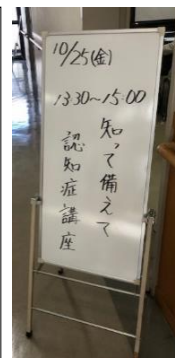 10/25(金)
13:30~15:00
知って備えて
認知症講座